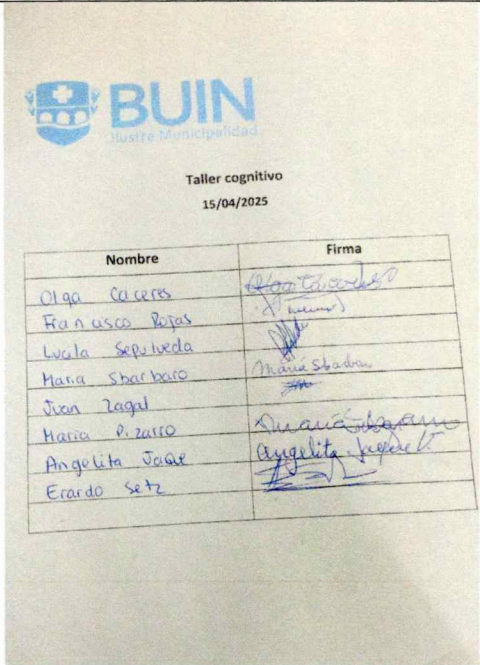 BUIN
Ilustre Municipalidad
Taller cognitivo
15/04/2025
Nombre Firma
Olga Caceres
Francisco Rojas
Lucila Sepulveda
Maria Sbarbaro Maria Sbarbaro
Juan Zagal
Maria Pizarro
Angelita Jaque Angelita Jaque V.
Erardo Setz